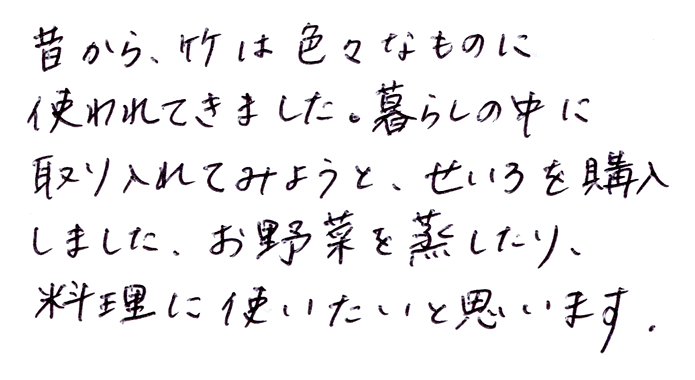 昔から、竹は色々なものに
使われてきました。暮らしの中に
取り入れてみようと、せいろを購入
しました、お野菜を蒸したり、
料理に使いたいと思います.